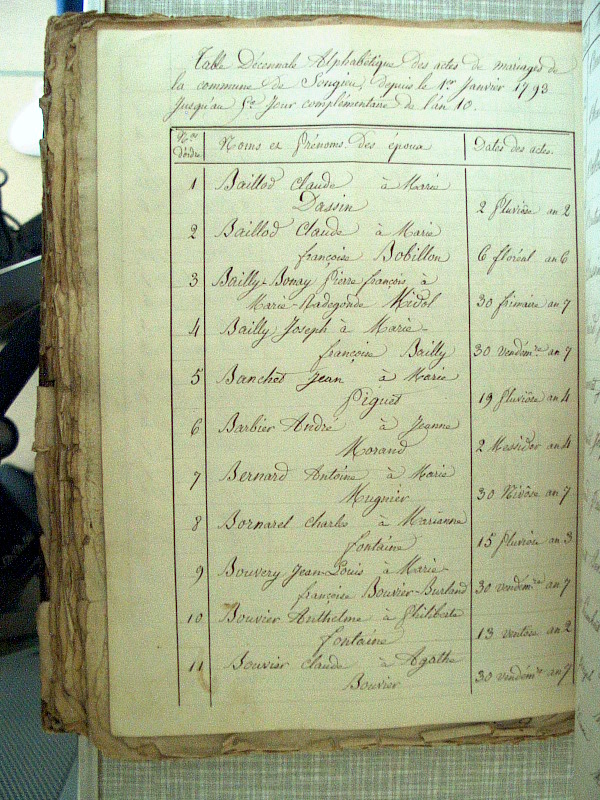 Table Décennale Alphabétique des actes de mariages de
la commune de Songieu, depuis le 1er Janvier 1793
Jusqu'au 5e Jour complémentaire de l'an 10.
Nos d'ordre Noms et Prénoms des époux Dates des actes.
1 Baillod Claude à Marie
Dassin 2 Pluviôse an 2
2 Baillod Claude à Marie
françoise Bobillon 6 floréal an 6
3 Bailly-Bonay Pierre françois à
Marie-Radegonde Midol 30 frimaire an 7
4 Bailly Joseph à Marie-
françoise Bailly 30 vendémre an 7
5 Banchet Jean à Marie
Piguet 19 Pluviôse an 4
6 Barbier André à Jeanne
Morand 2 Messidor an 4
7 Bernard Antoine à Marie
Mugnier 30 Nivôse an 7
8 Bornarel Charles à Marianne
fontaine 15 Pluviôse an 3
9 Bouvery Jean-Louis à Marie-
françoise Bouvier-Burland 30 vendémre an 7
10 Bouvier Anthelme à Philiberte
fontaine 13 ventôse an 2
11 Bouvier Claude à Agathe
Bouvier 30 vendémre an 7